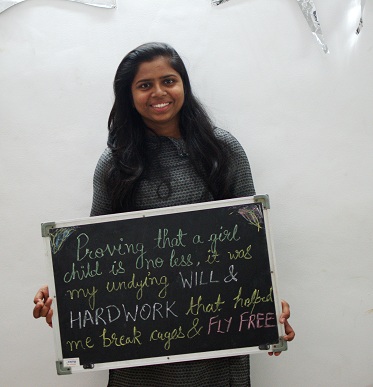 Proving that a girl
child is no less, it was
my undying WILL &
HARDWORK that helped
me break cages & FLY FREE